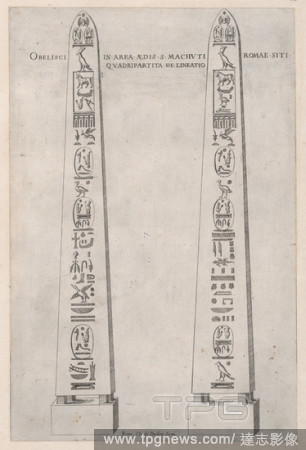 OBELISCI IN AREA ÆDIS S. MACHVTI ROMAE SITI
QVADRIPARTITA DE LINEATIO
TPG
www.tpgnews.com/達志影像